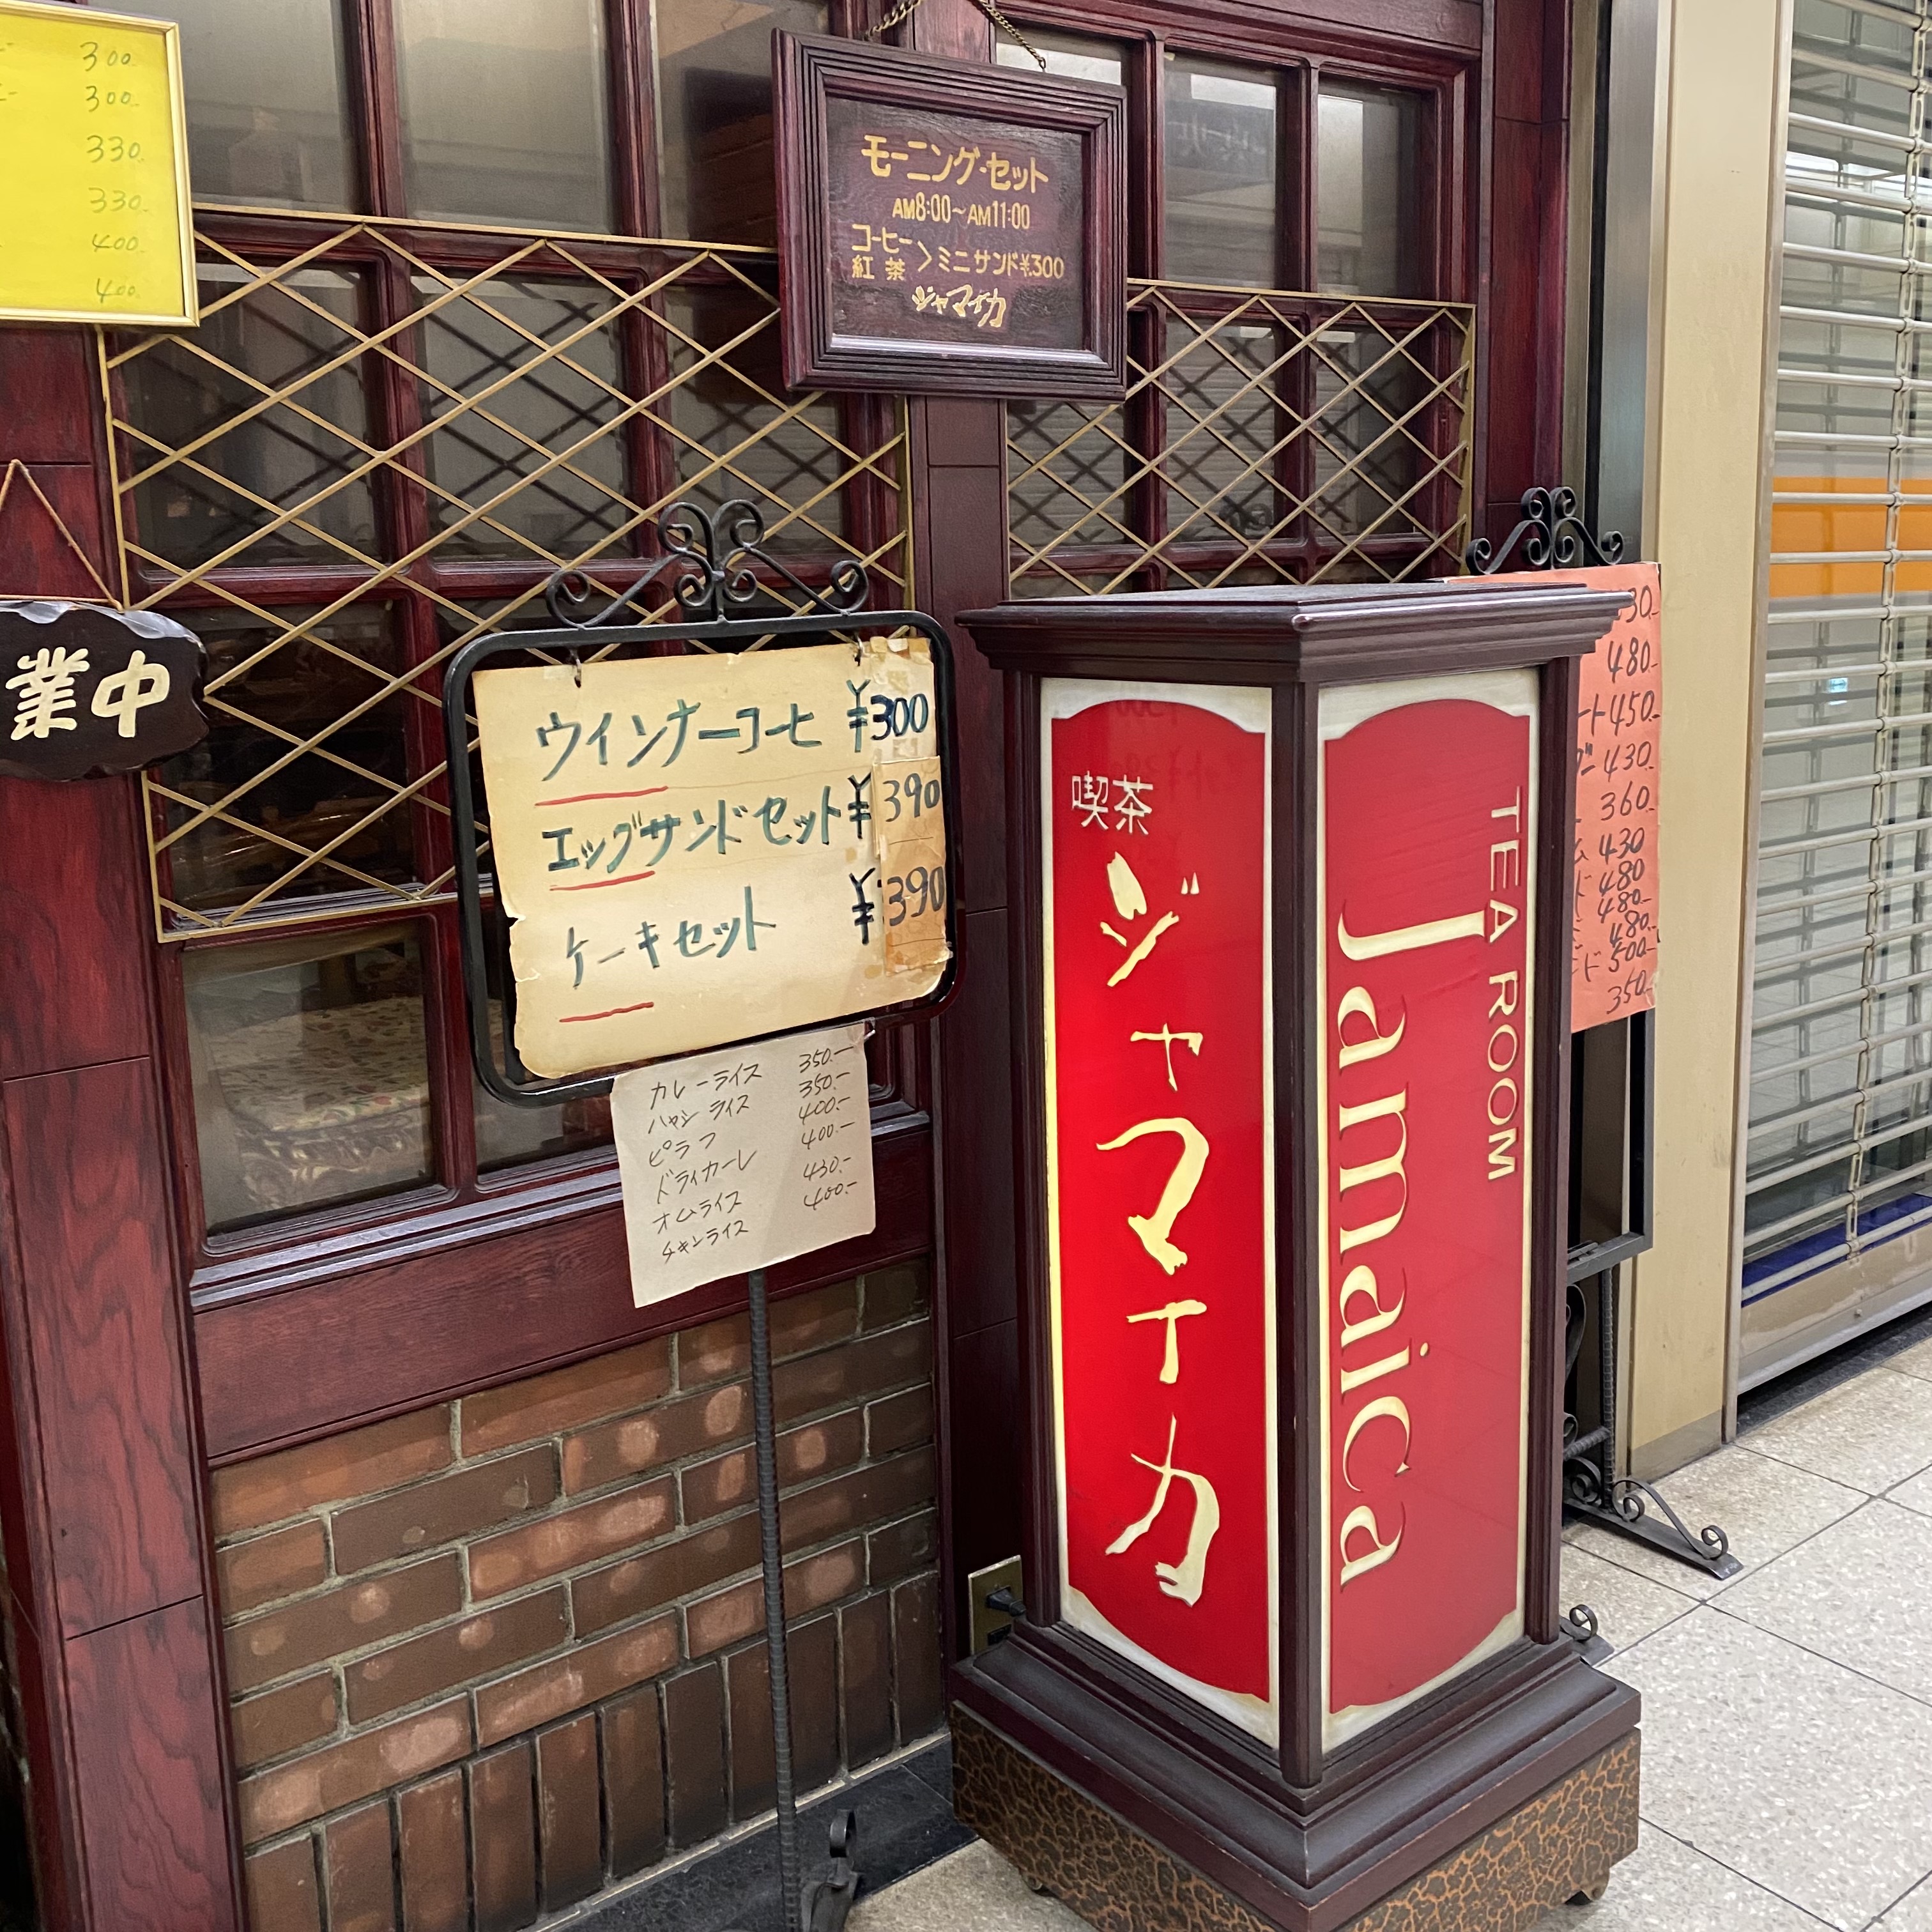 300.
300.
330.
330.
400.
400.
モーニング・セット
AM8:00~AM11:00
コーヒー
紅茶 〉ミニサンド¥300
ジャマイカ
業中
ウインナーコーヒ ¥300
エッグサンドセット ¥390
ケーキセット ¥390
カレーライス 350.-
ハヤシライス 350.-
ピラフ 400.-
ドライカーレ 400.-
オムライス 430.-
チキンライス 400.-
喫茶
ジャマイカ
TEA ROOM
Jamaica
30.-
480.-
ート450.-
430
360.-
430
480
480.-
480.-
ド 500.-
350.-